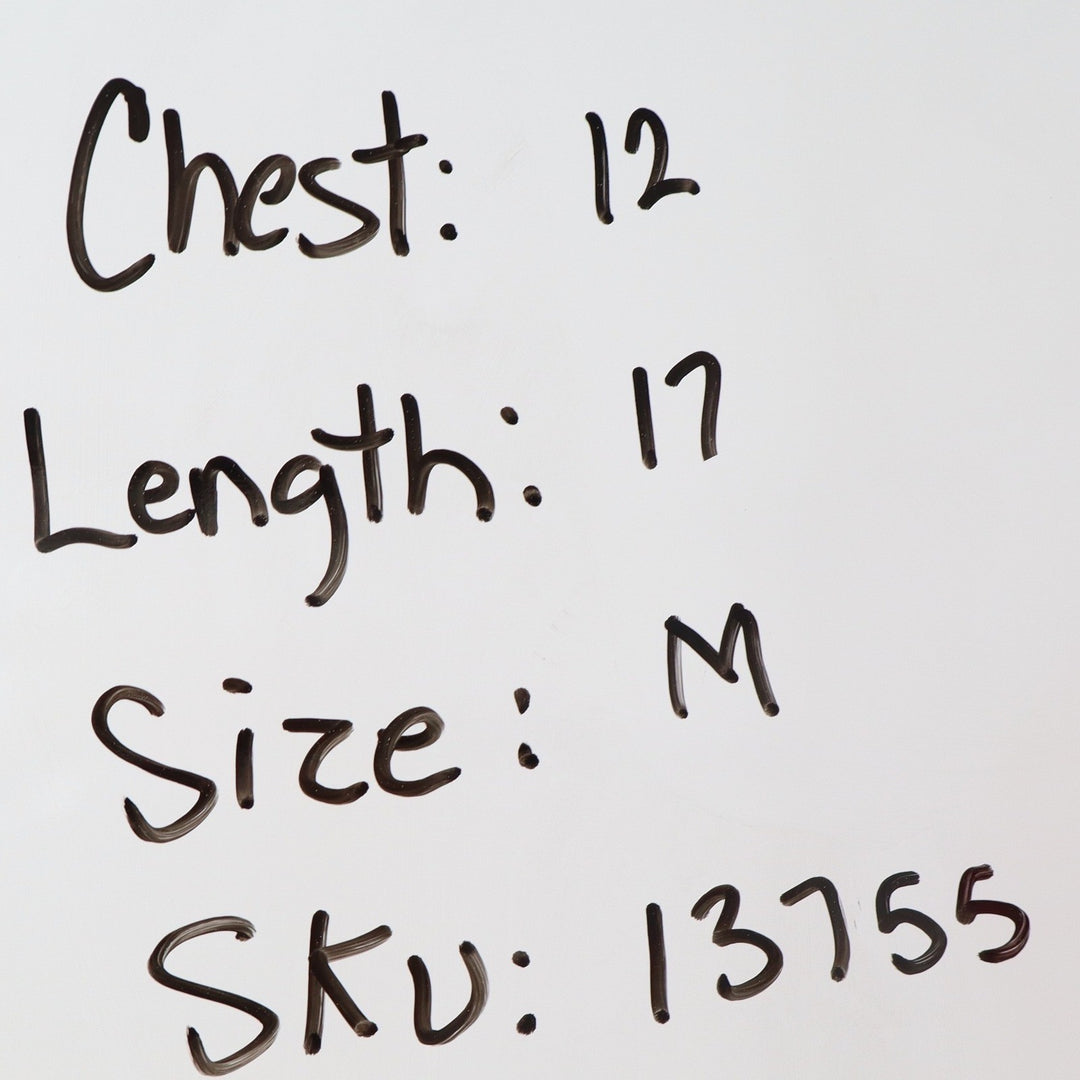 Chest: 12
Length: 17
Size: M
Sku: 13755